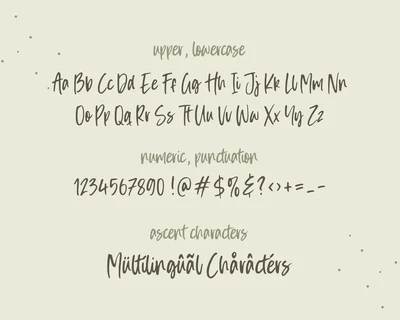 upper, lowercase
Aa Bb Cc Dd Ee Ff Gg Hh Ii Jj Kk Ll Mm Nn
Oo Pp Qq Rr Ss Tt Uu Vv Ww Xx Yy Zz
numeric, punctuation
1234567890 !@#$%&?<>+=_-
ascent characters
Mültílingûãl Chåråctérs